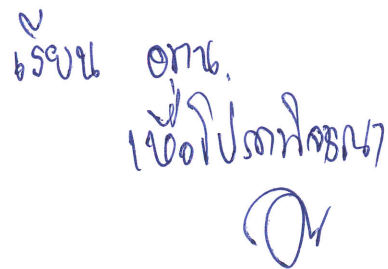 เรียน อทน.
เพื่อโปรดพิจารณา